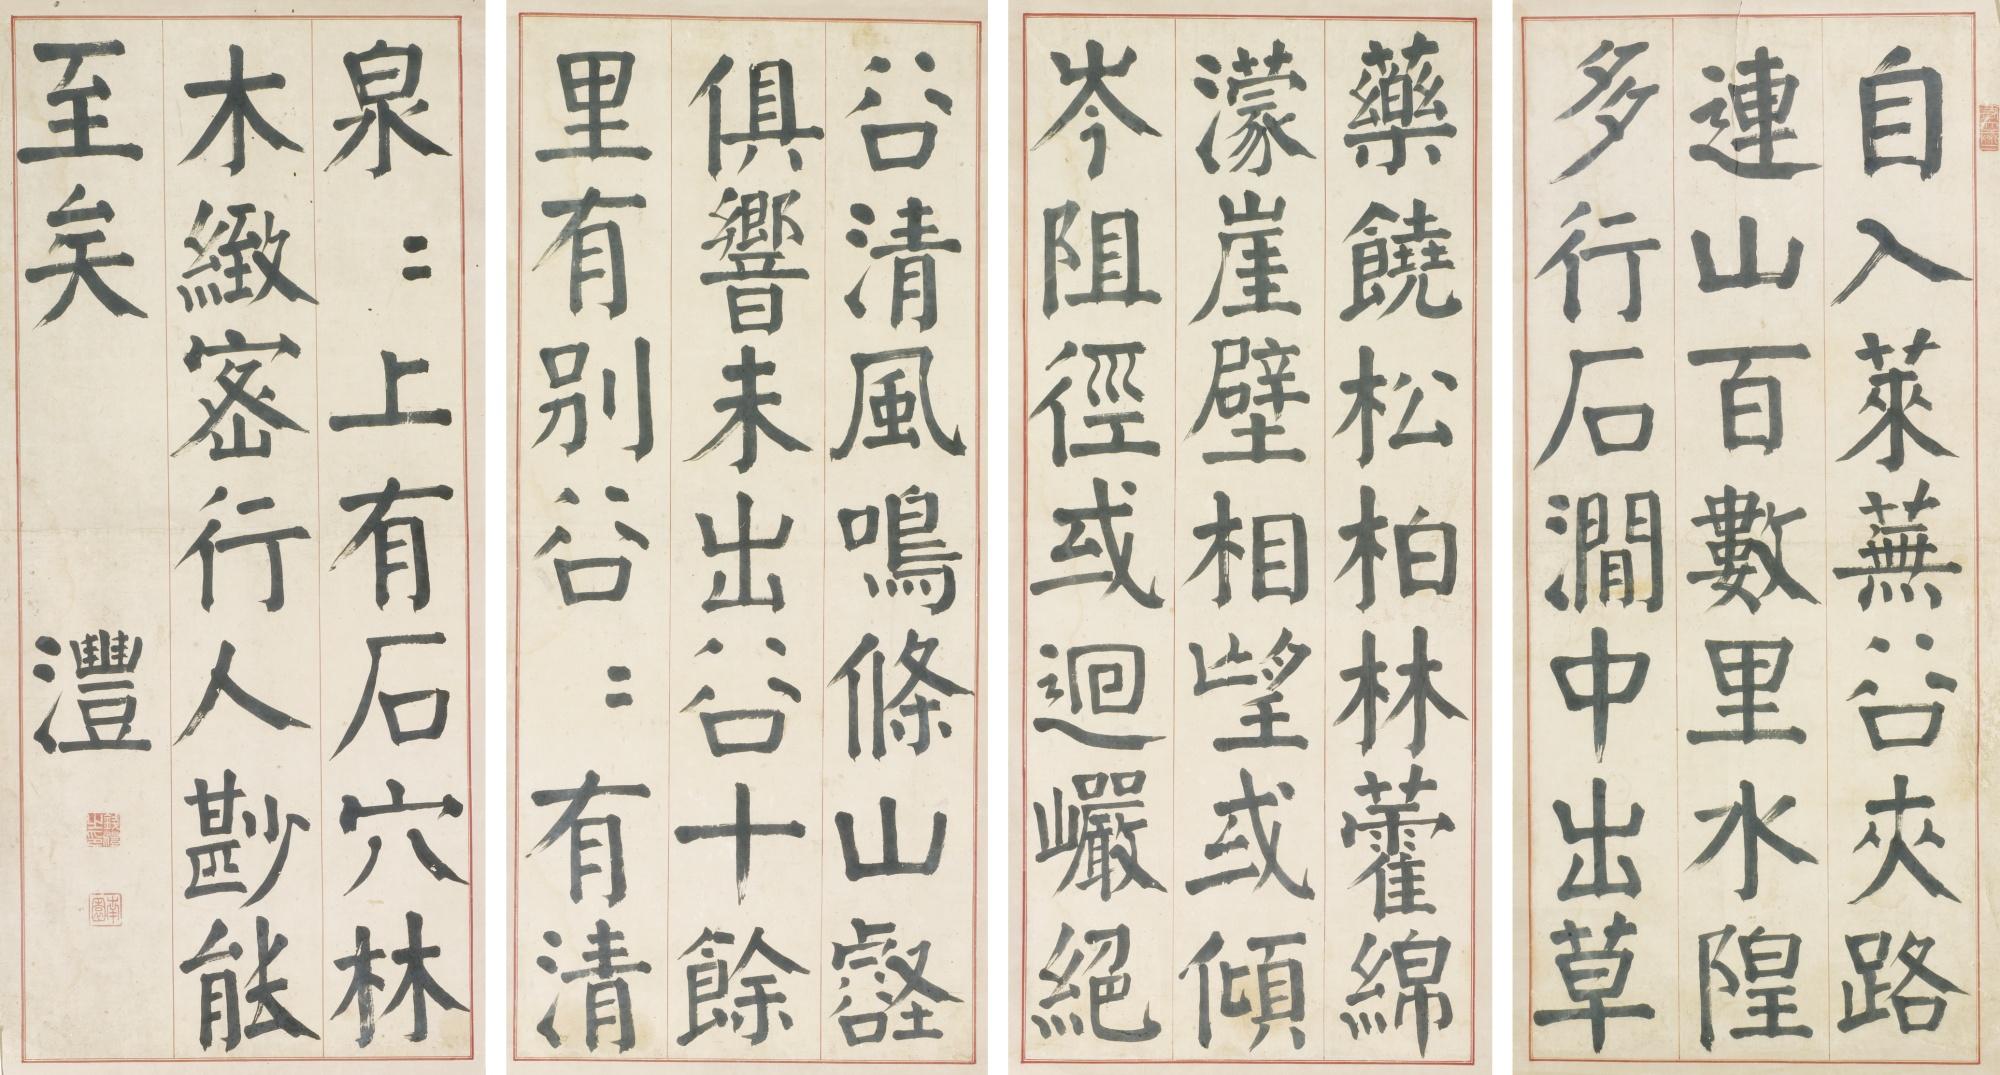 自入萊蕪谷夾路
連山百數里水隍
多行石澗中出草
藥饒松柏林藿綿
濛崖壁相望或傾
岑阻徑或迴巖絕
谷清風鳴條山壑
俱響未出谷十餘
里有別谷〻有清
泉〻上有石穴林
木緻密行人尠能
至矣
灃
南園